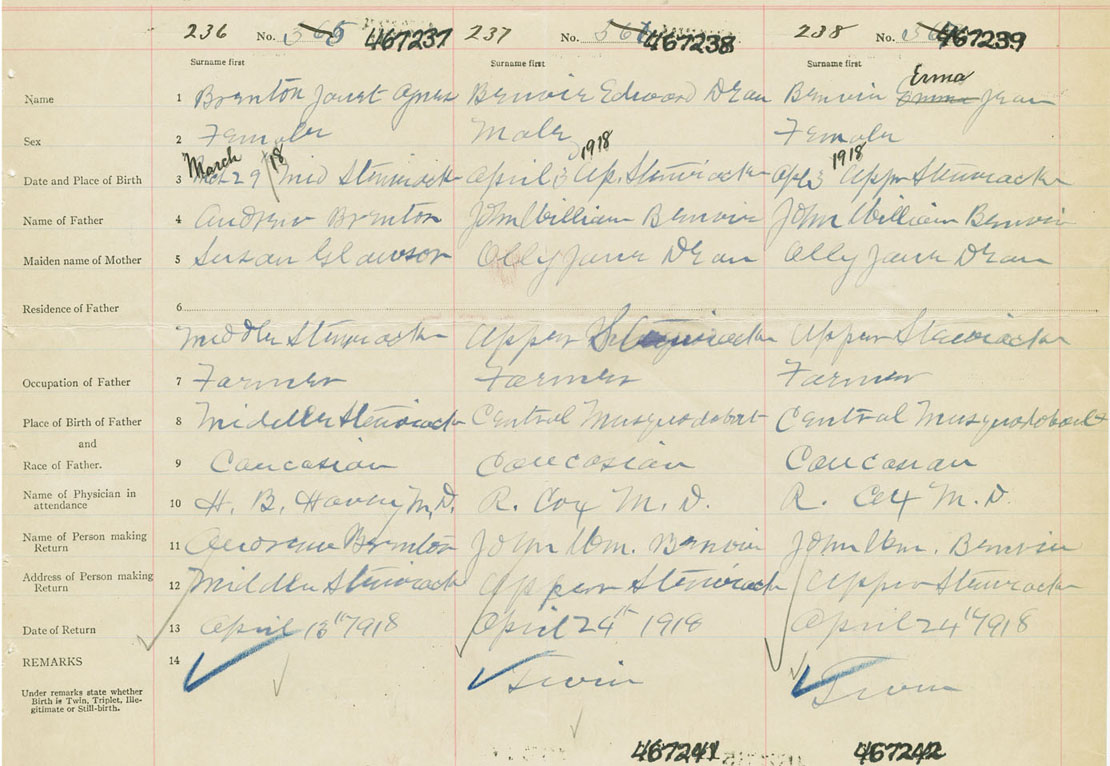 236 No. 365 467237 237 No. 467238 238 No. 467239
Surname first Surname first Surname first
Erma
Name 1 Brenton Janet Agnes Benvie Edward Dean Benvie Emma Jean
Sex 2 Female Male Female
March 18 1918 1918
Date and Place of Birth 3 29 Mid Stewiacke April 3 Up. Stewiacke Apl 3 Upper Stewiacke
Name of Father 4 Andrew Brenton John William Benvie John William Benvie
Maiden name of Mother 5 Susan Glawson Olly Jane Dean Olly Jane Dean
Residence of Father 6
Middle Stewiacke Upper Stewiacke Upper Stewiacke
Occupation of Father 7 Farmer Farmer Farmer
Place of Birth of Father 8 Middle Stewiacke Central Musquodoboit Central Musquodoboit
and
Race of Father. 9 Caucasian Caucasian Caucasian
Name of Physician in attendance 10 H. B. M.D. R. Cox M.D. R. Cox M.D.
Name of Person making Return 11 Andrew Brenton John Wm. Benvie John Wm. Benvie
Address of Person making Return 12 Middle Stewiacke Upper Stewiacke Upper Stewiacke
Date of Return 13 April 13th 1918 April 24th 1918 April 24th 1918
REMARKS 14 Twin Twin
Under remarks state whether
Birth is Twin, Triplet, Ille-
gitimate or Still-birth.
467241 467242